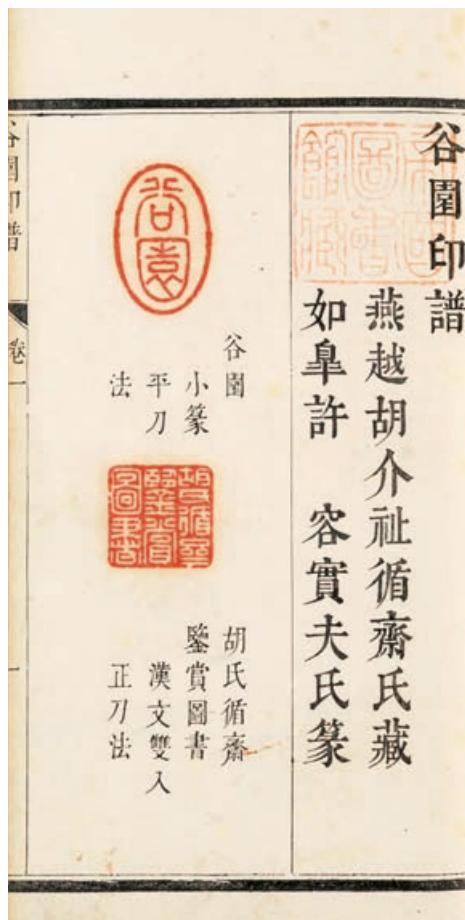 谷園印譜
燕越胡介祉循齋氏藏
如臯許 容實夫氏篆
谷園
谷園
小篆
平刀
法
胡氏循齋
鑒賞圖書
胡氏循齋
鑒賞圖書
漢文雙入
正刀法
谷園印譜
卷一
一